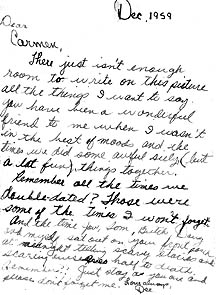 Dec, 1959
Dear
Carmen,
There just isn't enough
room to write on this picture
all the things I want to say.
You have been a wonderful
friend to me when I wasn't
in the best of moods and the
times we did some awful silly (but
a lot fun) things together.
Remember all the times we
double-dated? Those were
some of the times I won't forget
And the time you, Tom, Butch
and myself sat out on your front porch
at telling scary stories and
scaring to walk.
Remember!! Just stay as you are and
please don't forget me. Love always,
Dee